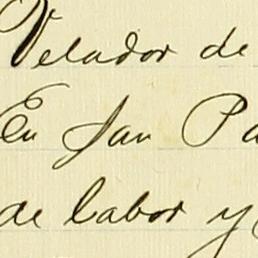 Velador de
En San Pa
de labor y